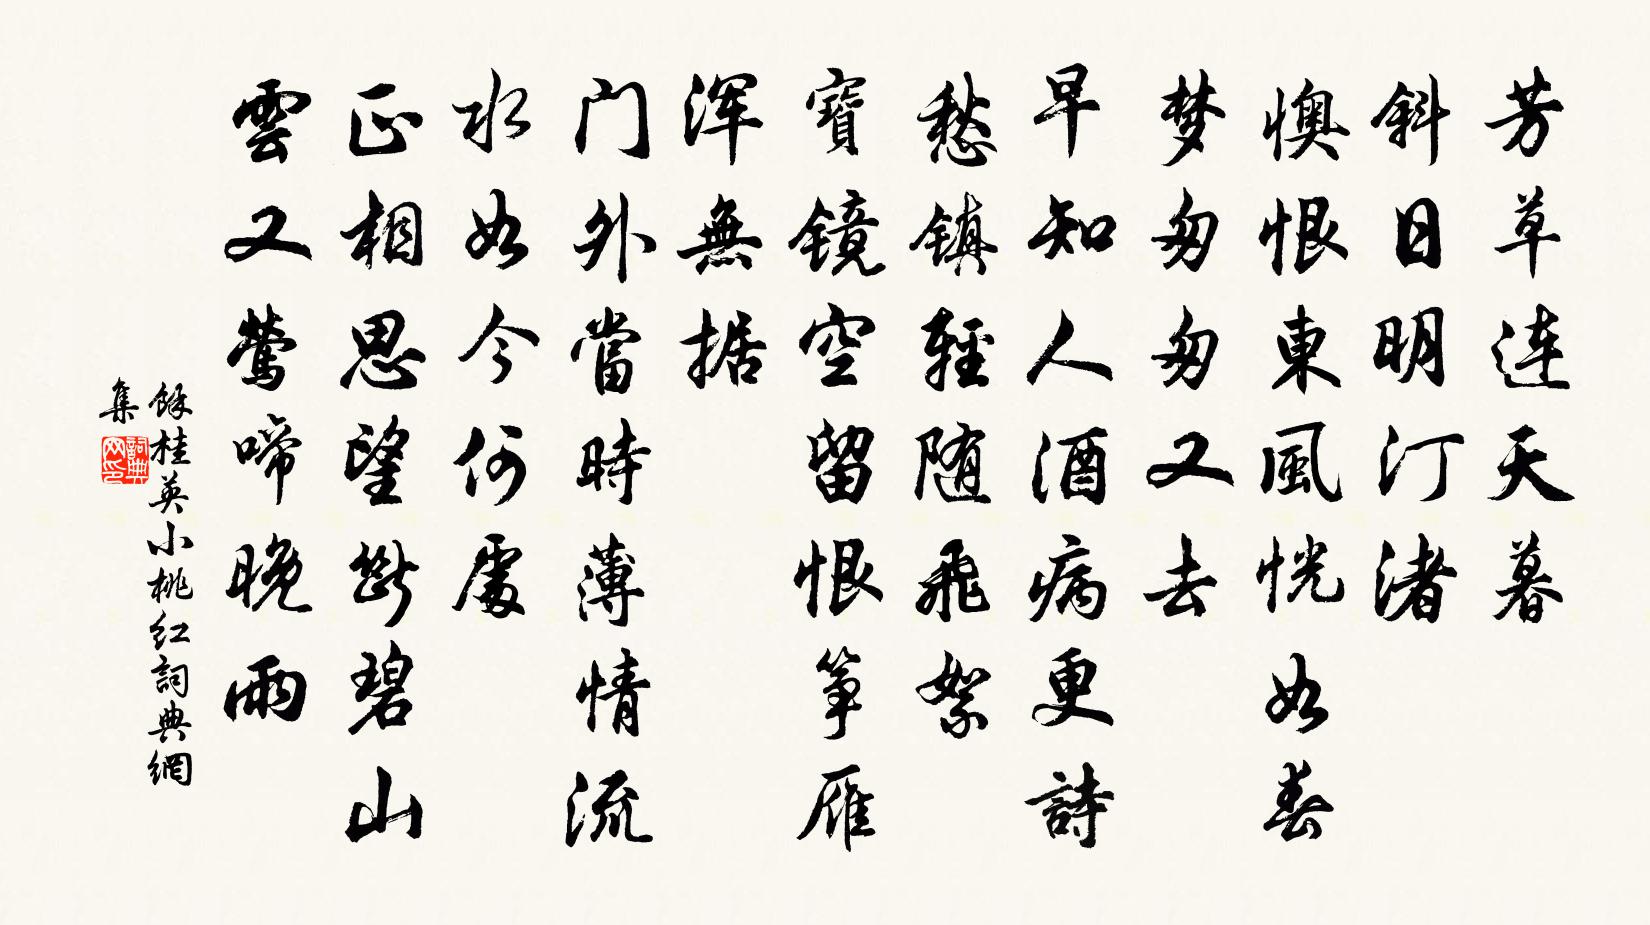 芳草连天暮
斜日明汀渚
懊恨東風恍如春
梦匆匆又去
早知人酒病更詩
愁镇輕随飛絮
寶镜空留恨筝雁
浑無据
门外當時薄情流
水如今何處
正相思望斷碧山
雲又莺啼晚雨
餘桂英小桃红詞典網
集
詞典
网印